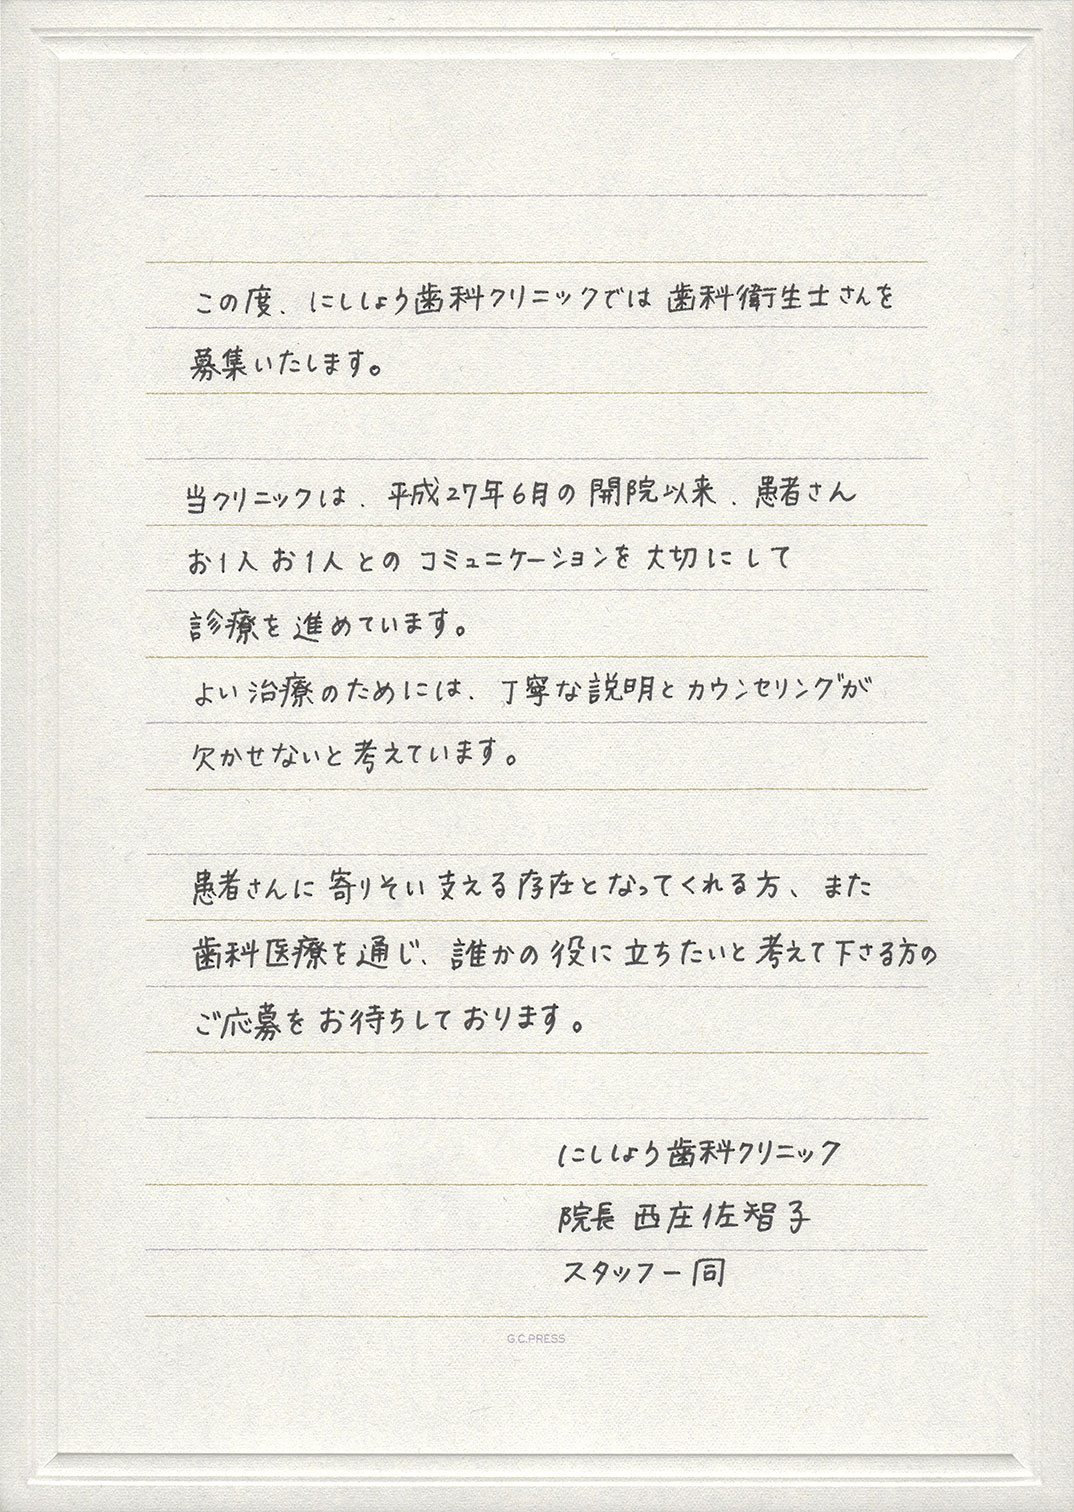 この度、にししょう歯科クリニックでは 歯科衛生士さんを
募集いたします。
当クリニックは、平成27年6月の 開院以来、患者さん
お1人お1人との コミュニケーションを 大切にして
診療を 進めています。
よい治療のためには、丁寧な説明とカウンセリングが
欠かせないと考えています。
患者さんに 寄りそい 支える存在となってくれる方、また
歯科医療を通じ、誰かの役に立ちたいと考えて下さる方の
ご応募をお待ちしております。
にししょう歯科クリニック
院長 西庄佐智子
スタッフ一同
G.C.PRESS